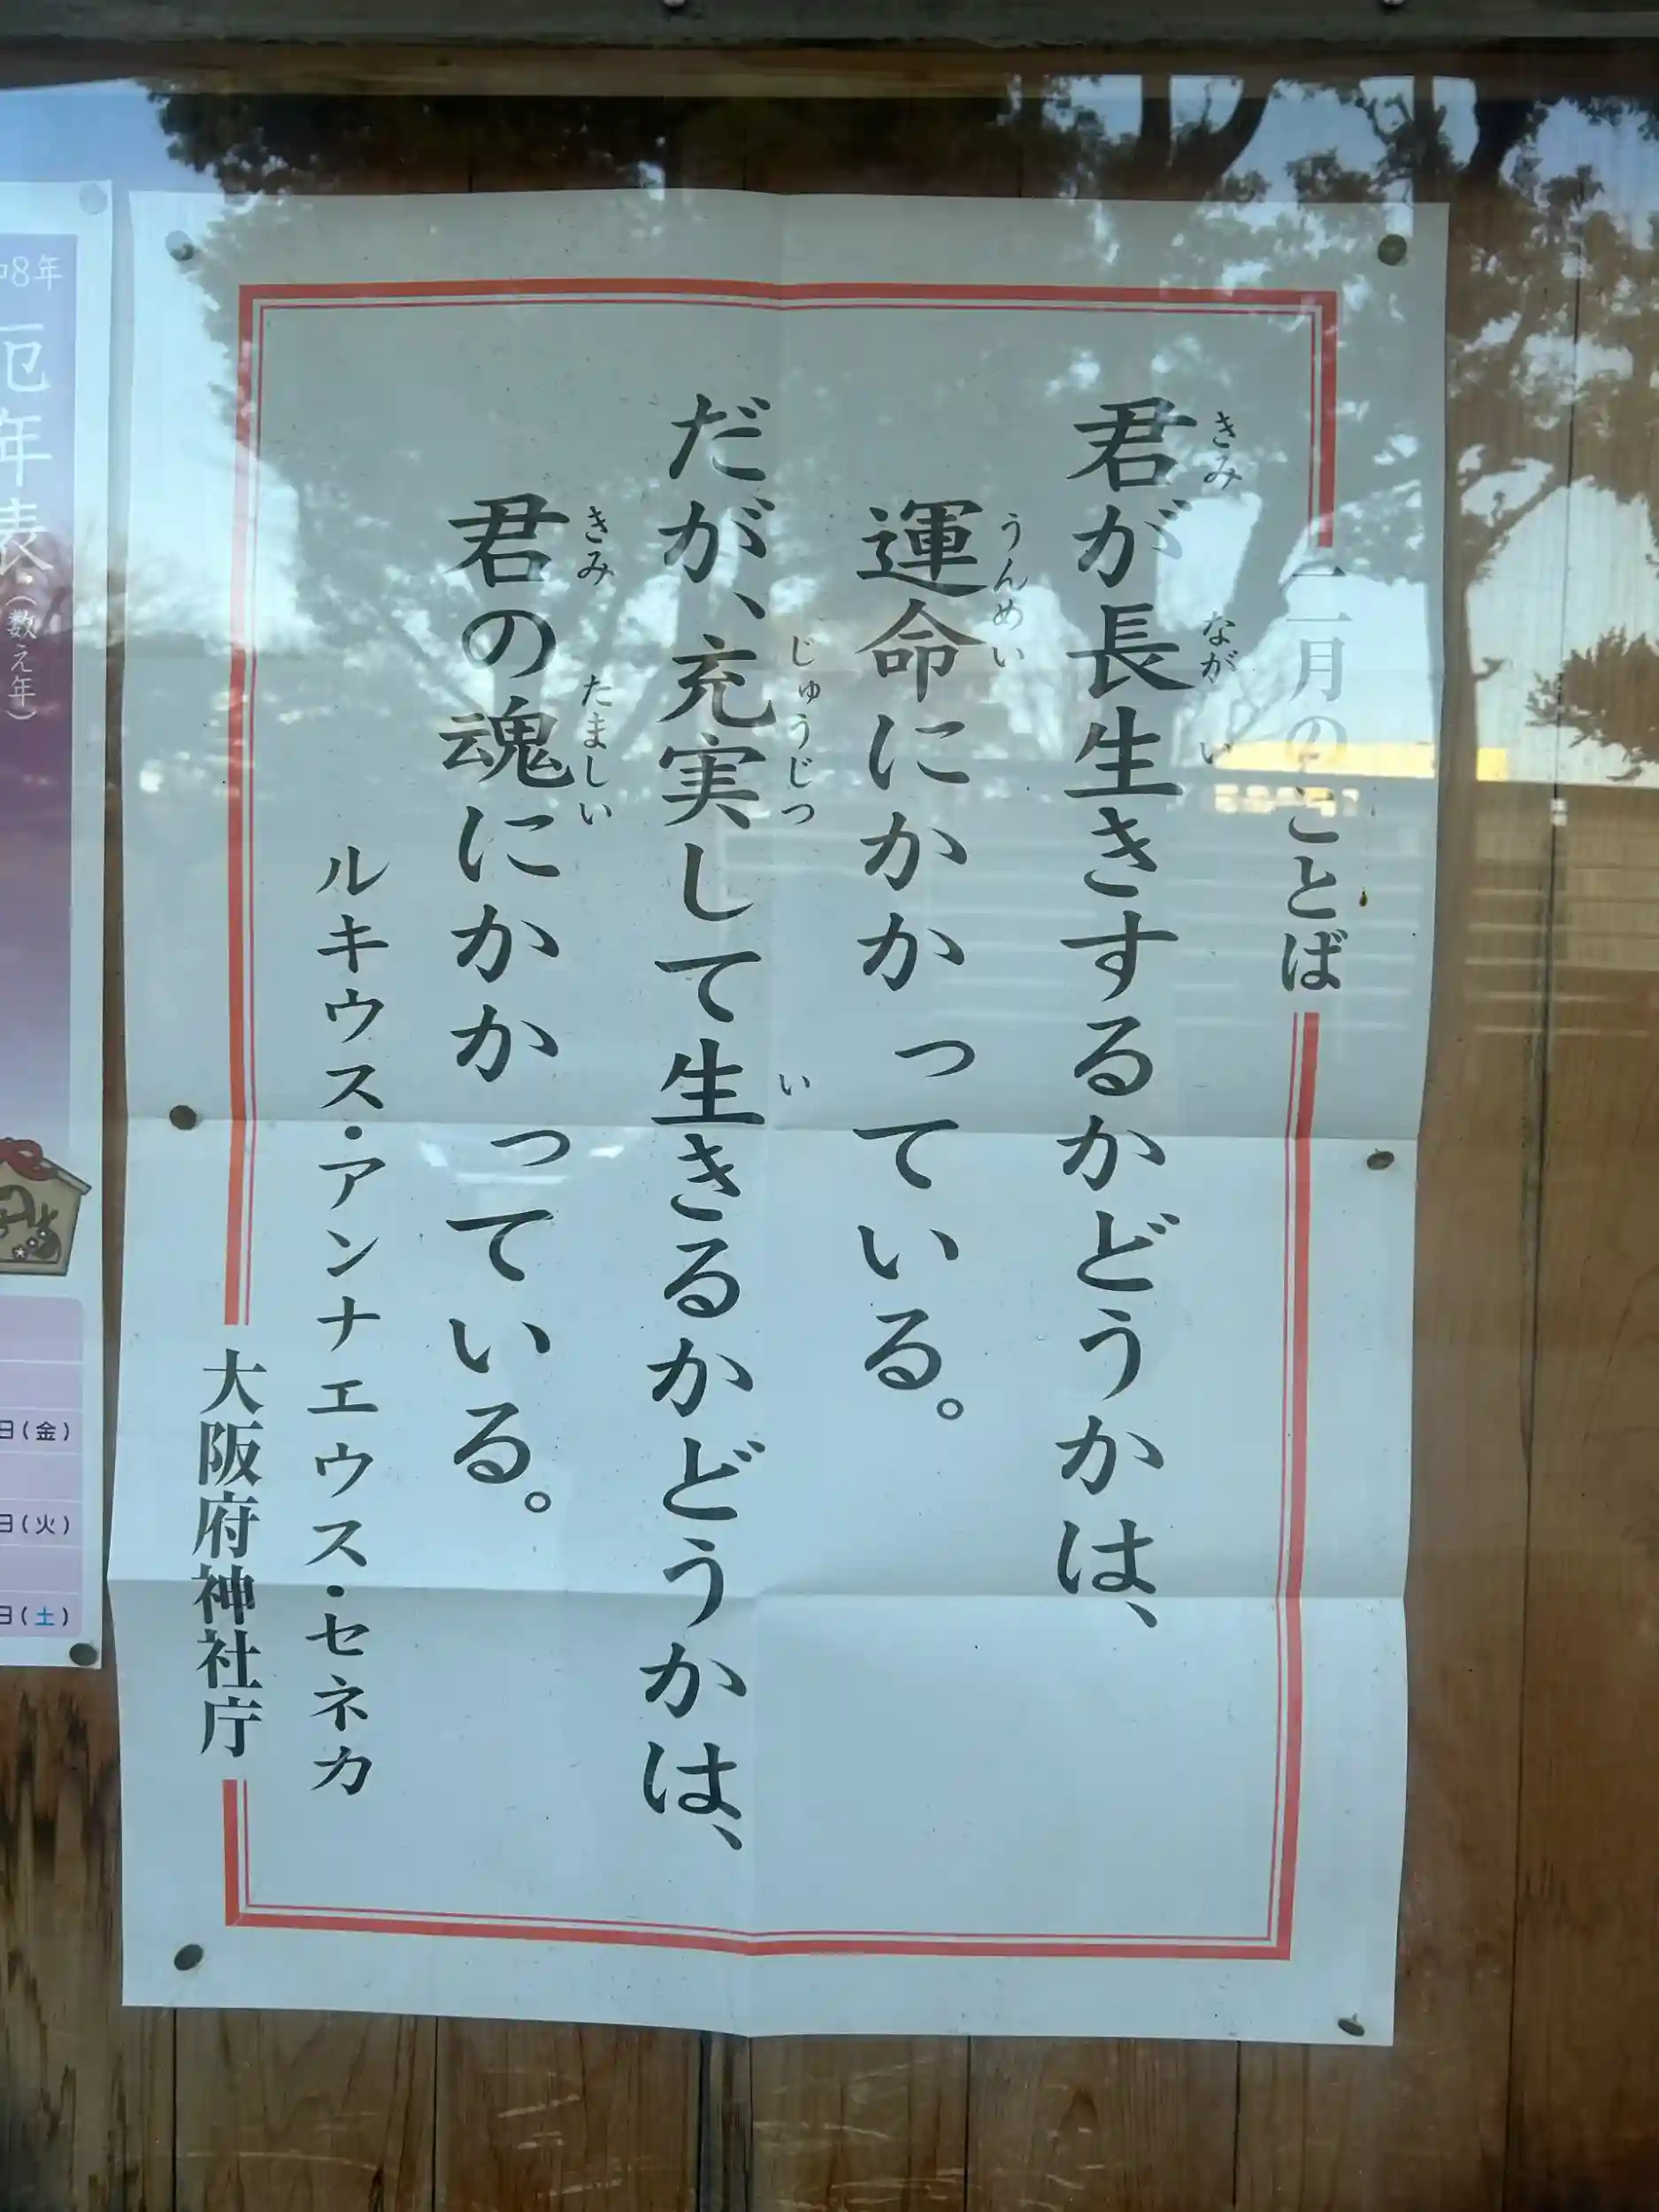 二月のことば
きみ なが い
君が長生きするかどうかは、
うんめい
運命にかかっている。
じゅうじつ い
だが、充実して生きるかどうかは、
きみ たましい
君の魂にかかっている。
ルキウス・アンナエウス・セネカ
大阪府神社庁
8年
厄年表・(数え年)
日(金)
日(火)
日(土)